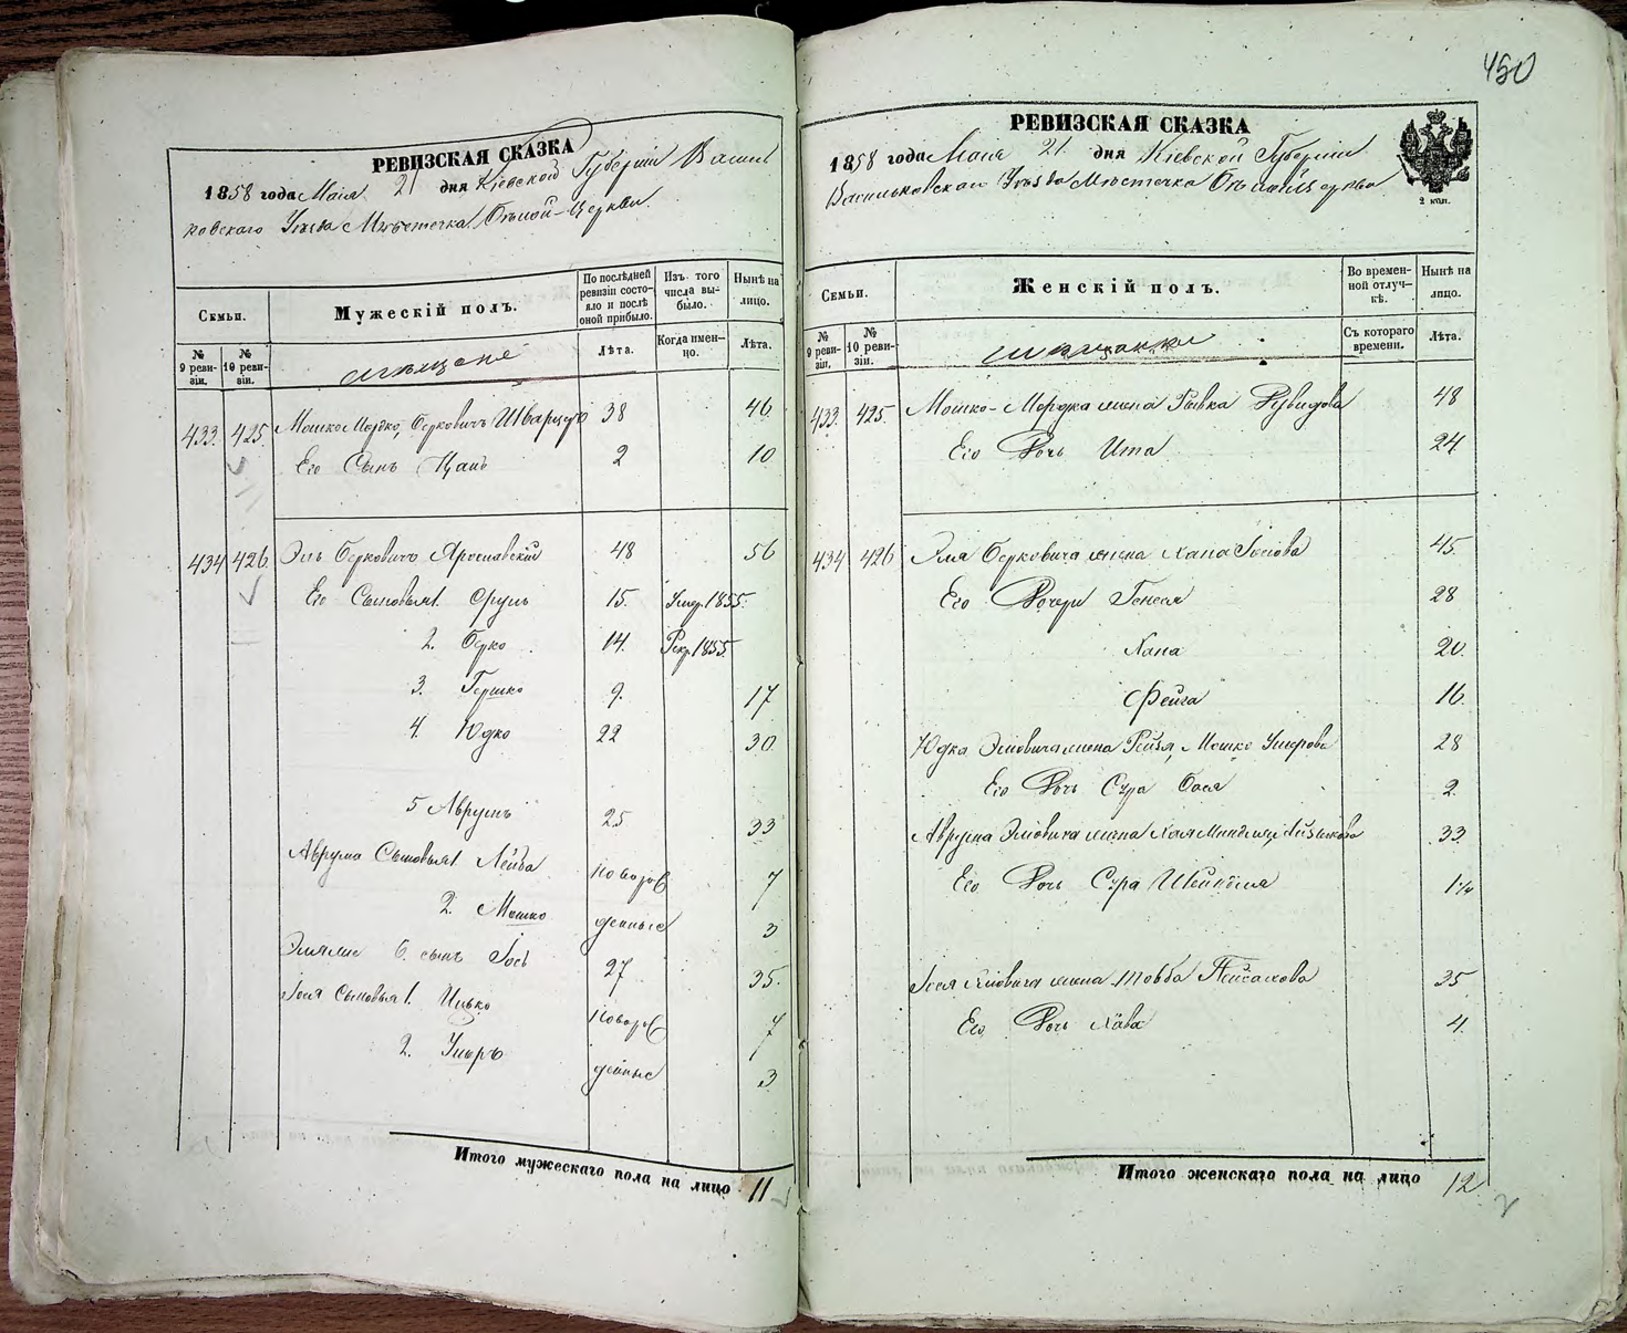 450
РЕВИЗСКАЯ СКАЗКА
1858 года Маія 21 дня Кіевской Губерніи Василь
ковскаго Уѣзда Мѣстечка Бѣлой-Церкви.
Семьи.
Мужескій полъ.
По послѣдней ревизіи состояло и послѣ оной прибыло.
Изъ того числа выбыло.
Нынѣ на лицо.
№ 9 ревизіи.
№ 10 ревизіи.
мѣщане
Лѣта.
Когда именно.
Лѣта.
433. 425. Мошко Мордко, Берковичъ Шварцъ 38 46
Его Сынъ 2 10
434 426. Эль Берковичъ Ярославскій 48 56
Его Сыновья 1. Срулъ 15. Умер. 1855.
2. Берко 14. Рекр. 1855.
3. Гершко 9. 17
4. Юдко 22 30.
5 Аврумъ 25 33
Аврума Сыновья 1. Лейба новорож 7
2. Мошко денные 3
6. сынъ Іось 27 35.
Іося Сыновья 1. Ицько новорож 7
2. Умеръ денные 3
Итого мужескаго пола на лицо 11
РЕВИЗСКАЯ СКАЗКА
1858 года Маія 21 дня Кіевской Губерніи
Васильковскаго Уѣзда Мѣстечка Бѣлой Церкви
2 коп.
Семьи.
Женскій полъ.
Во временной отлучкѣ.
Нынѣ на лицо.
№ 9 ревизіи.
№ 10 ревизіи.
мѣщанки
Съ котораго времени.
Лѣта.
433. 425. Мошко-Мордка жена Рывка Рувидова 48
Его Дочь Ита 24
434 426 Эля Берковича жена Хана Іосіова 45.
Его Дочери Генеся 28
Хана 20.
Фейга 16.
Юдка Эліовича жена Рейзя, Мошко Умерова 28
Его Дочь Сура Бася 2.
Аврума Эліовича жена Хая Миндля, Айзыкова 33.
Его Дочь Сура Шейндля 1½
Іося Эліовича жена Товба Пейсахова 35
Его Дочь Хава 4.
Итого женскаго пола на лицо 12